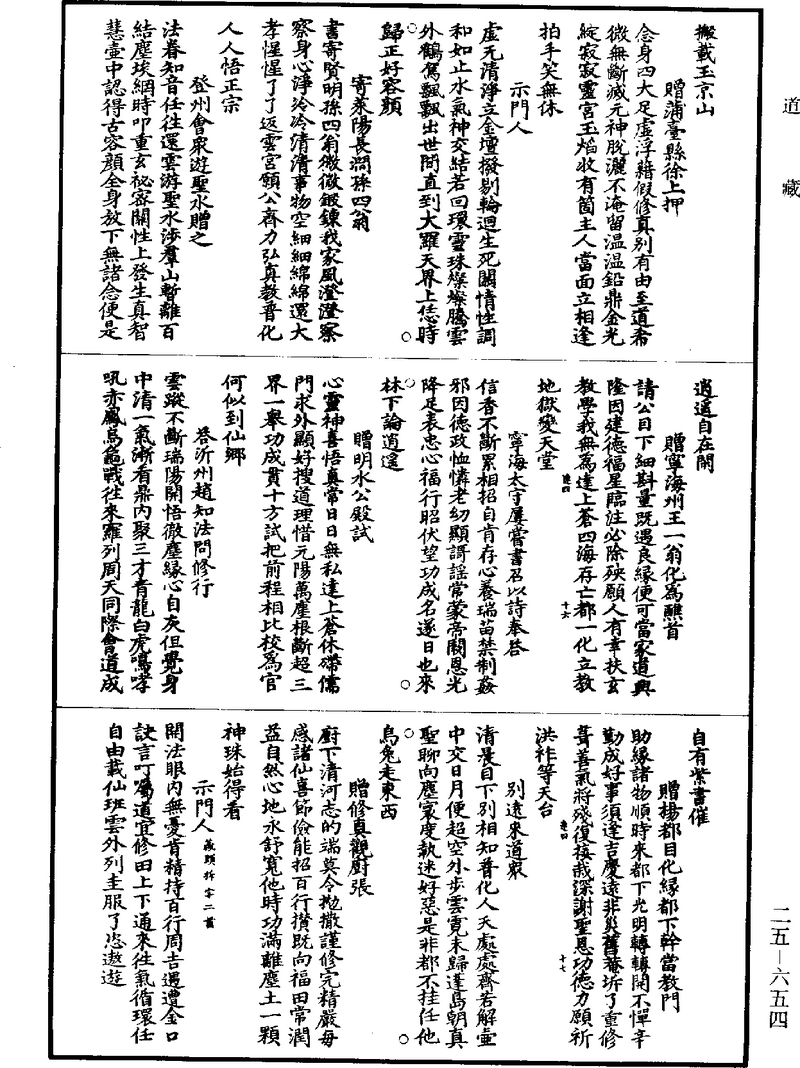 道藏
搬載玉京山
贈蒲臺縣徐上押
念身四大足虛浮藉假修真別有由至道希
微無斷減元神脫灑不淹留溫溫鉛鼎金光
綻寂寂靈宮玉焰收有箇主人當面立相逢
拍手笑無休
示門人
虛无清淨立金壇撥剔輪迴生死關情性調
和如止水氣神交結若回環靈珠燦燦騰雲
外鶴駕飄飄出世間直到大羅天界上恁時
歸正好容顏
寄萊陽長澗孫四翁
書寄賢明孫四翁微微鍛鍊我家風澄澄察
察身心淨泠泠清清事物空細細綿綿還大
孝惺惺了了返雲宮願公齊力弘真教普化
人人悟正宗
登州會眾遊聖水贈之
法眷知音任往還雲游聖水涉羣山暫離百
結塵埃網時叩重玄祕密關性上發生真智
慧壺中認得古容顏全身放下無諸念便是
逍遥自在閑
贈寧海州王一翁化為醮首
請公目下細斟量既遇良緣便可當家道興
隆因建德福星臨注必除殃願人有幸扶玄
教學我無為達上蒼四海存亡都一化立教
地獄變天堂
寧海太守屢嘗書召以詩奉答
信香不斷累相招自肯存心養瑞苗禁制姦
邪因德政恤憐老幼顯謌謠常蒙帝闕恩光
降足表忠心福行昭伏望功成名遂日也來
林下論逍遥
贈明水公殿試
心靈神喜悟真常日日無私達上蒼休磹儒
門求外顯好搜道理惜元陽萬塵根斷超三
界一舉功成貫十方試把前程相比校為官
何似到仙鄉
答沂州趙知法問修行
雲蹤不斷瑞陽開悟徹塵緣心自灰但覺身
中清一氣漸看鼎內聚三才青龍白虎鳴哮
吼赤鳳烏龜戰往來羅列周天同際會道成
自有紫書催
贈楊都目化緣都下幹當教門
助緣諸物順時來都下光明轉轉開不憚辛
勤成好事須逢吉慶遠非災舊菴坼了重修
葺善氣將殘復接栽深謝聖恩功德力願祈
洪祚等天台
別遠來道眾
清漫目下別相知普化人天處處齊若解壷
中交日月便超空外步雲霓未歸蓬島朝真
聖聊向塵寰度執迷好惡是非都不挂任他
烏兔走東西
贈修真觀廚張
廚下清河志的端莫令拋撒謹修完精嚴每
感諸仙喜節儉能招百行攢既向福田常潤
益自然心地永舒寬他時功滿離塵土一顆
神珠始得看
示門人 藏頭拆字二首
開法眼內無憂肯精持百行周吉遇遭金口
訣言叮囑道宜修田上下通來往氣循環任
自由載仙班雲外列圭服了恣遨遊
二五—六五四